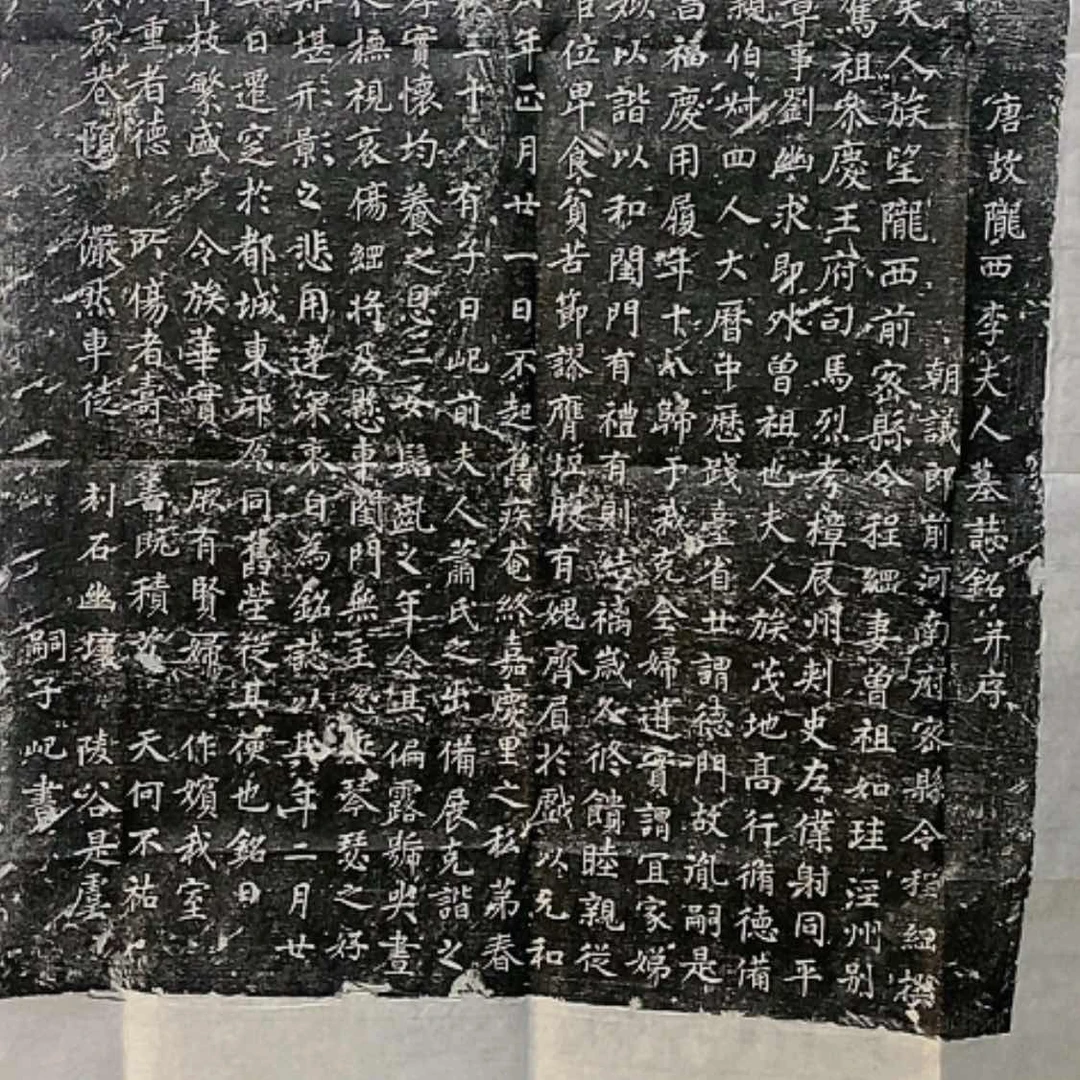 唐故隴西李夫人墓誌銘并序
朝議郎前河南府密縣令程絪撰
夫人族望隴西前密縣令程絪妻曾祖如珪涇州別
駕祖叅慶王府司馬烈考樟辰州刺史左僕射同平
章事劉幽求即外曾祖也夫人族茂地高行循德備
親伯叔四人大曆中歷踐臺省世謂德門故胤嗣是
昌福慶用履年十八歸于我克全婦道實謂宜家娣
姒以諧以和閨門有禮有則結褵歲久終饋睦親從
官位卑食貧苦節謬齊垣腹有媿齊眉於戲以元和
年正月廿一日不起舊疾奄終嘉慶里之私第春
秋三十八有子曰屺前夫人蕭氏之出備展克諧之
孝實懷均養之恩三女髫齔之年念其偏露號哭晝
夜撫視哀傷絪將及懸車閨門無主忽失琴瑟之好
難堪形影之悲用達深衷自為銘誌以其年二月廿
日遷窆於都城東邙原同舊塋從其便也銘曰
枝繁盛 令族華實 厥有賢婦 作嬪我室
重者德 所傷者壽 善既積 天何不祐
哀巷 儼然車徒 刻石幽壤 陵谷是虞
嗣子屺書